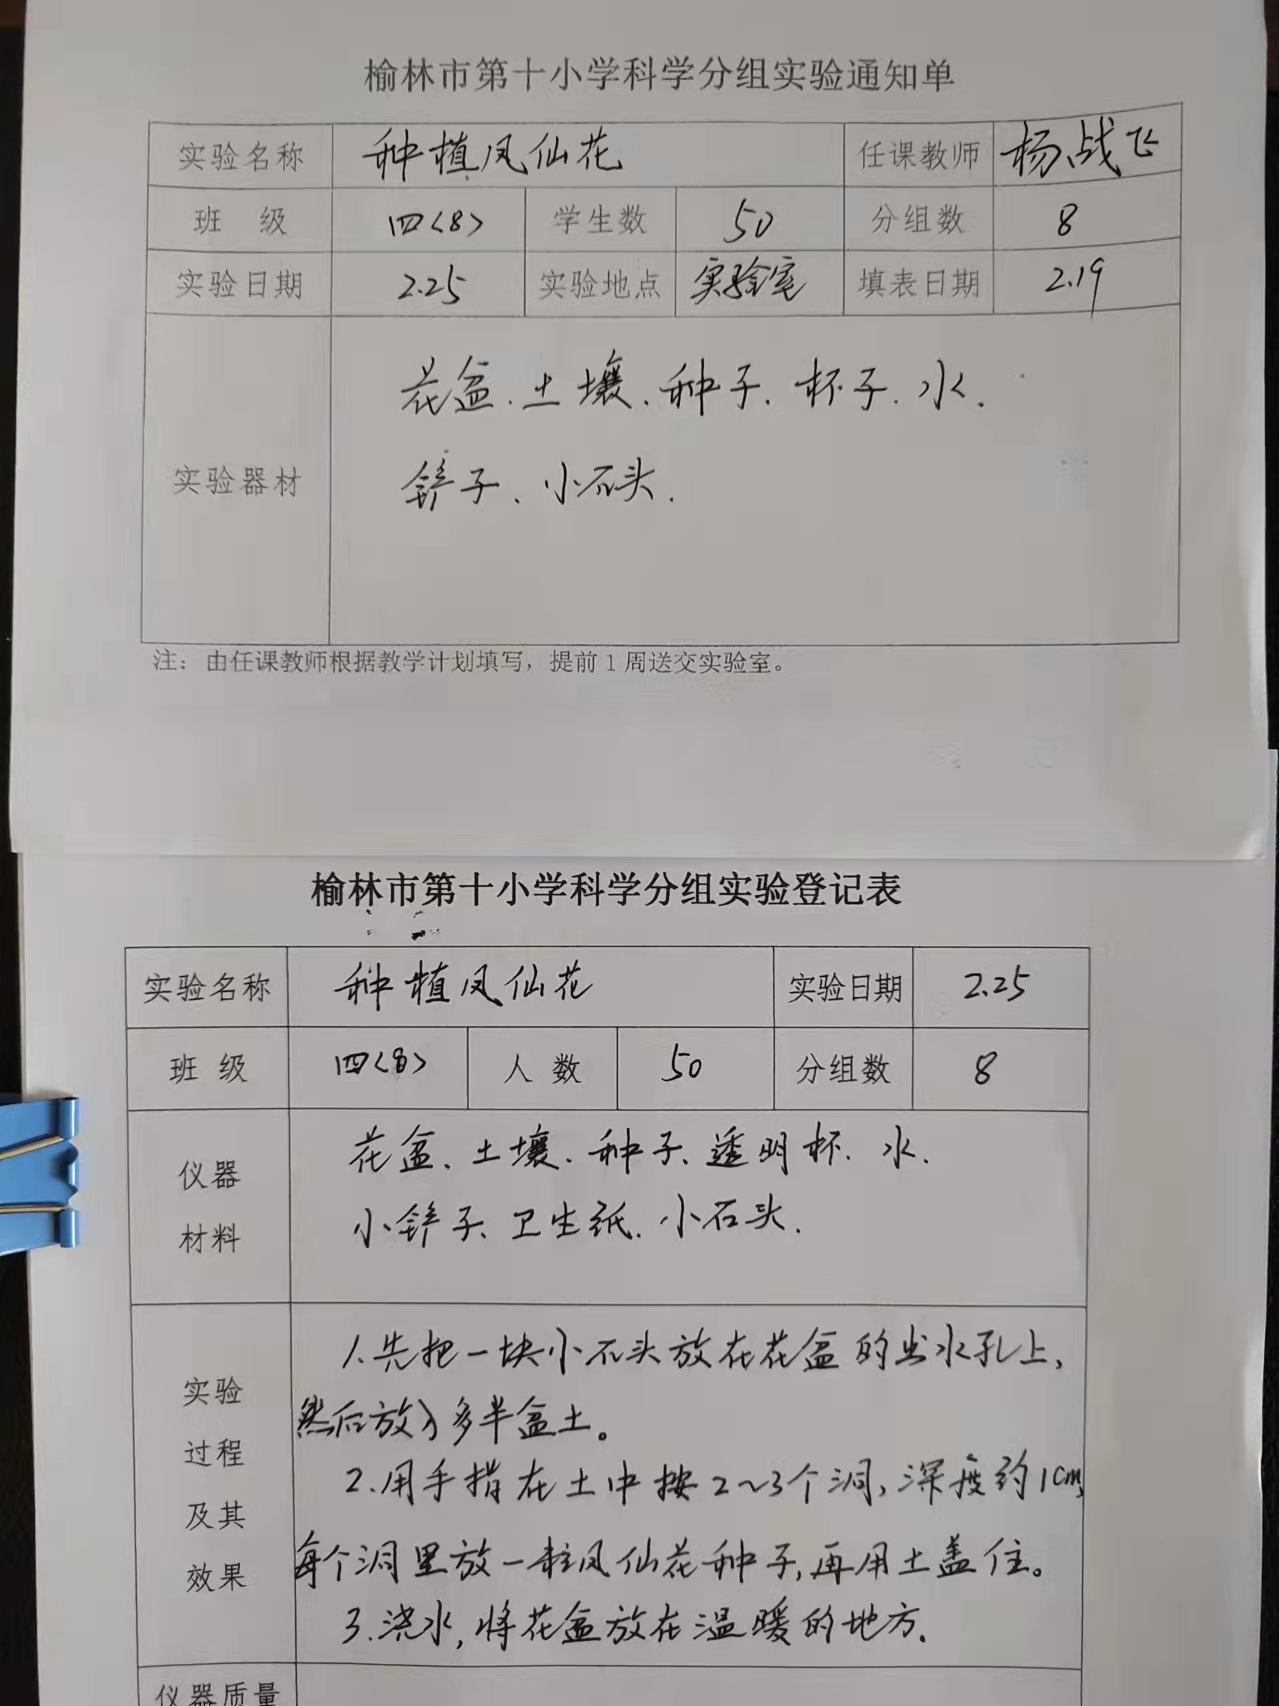 榆林市第十小学科学分组实验通知单
实验名称 种植凤仙花 任课教师 杨战飞
班 级 四<8> 学生数 50 分组数 8
实验日期 2.25 实验地点 实验室 填表日期 2.19
花盆、土壤、种子、杯子、水、
实验器材 铲子、小石头.
注：由任课教师根据教学计划填写，提前1周送交实验室。
榆林市第十小学科学分组实验登记表
实验名称 种植凤仙花 实验日期 2.25
班 级 四<8> 人 数 50 分组数 8
仪器
材料
花盆、土壤、种子、透明杯、水、
小铲子、卫生纸、小石头.
实验
过程
及其
效果
1.先把一块小石头放在花盆的出水孔上，
然后放入多半盆土。
2.用手指在土中按2~3个洞，深度约1cm，
每个洞里放一粒凤仙花种子，再用土盖住。
3.浇水，将花盆放在温暖的地方.
仪器质量